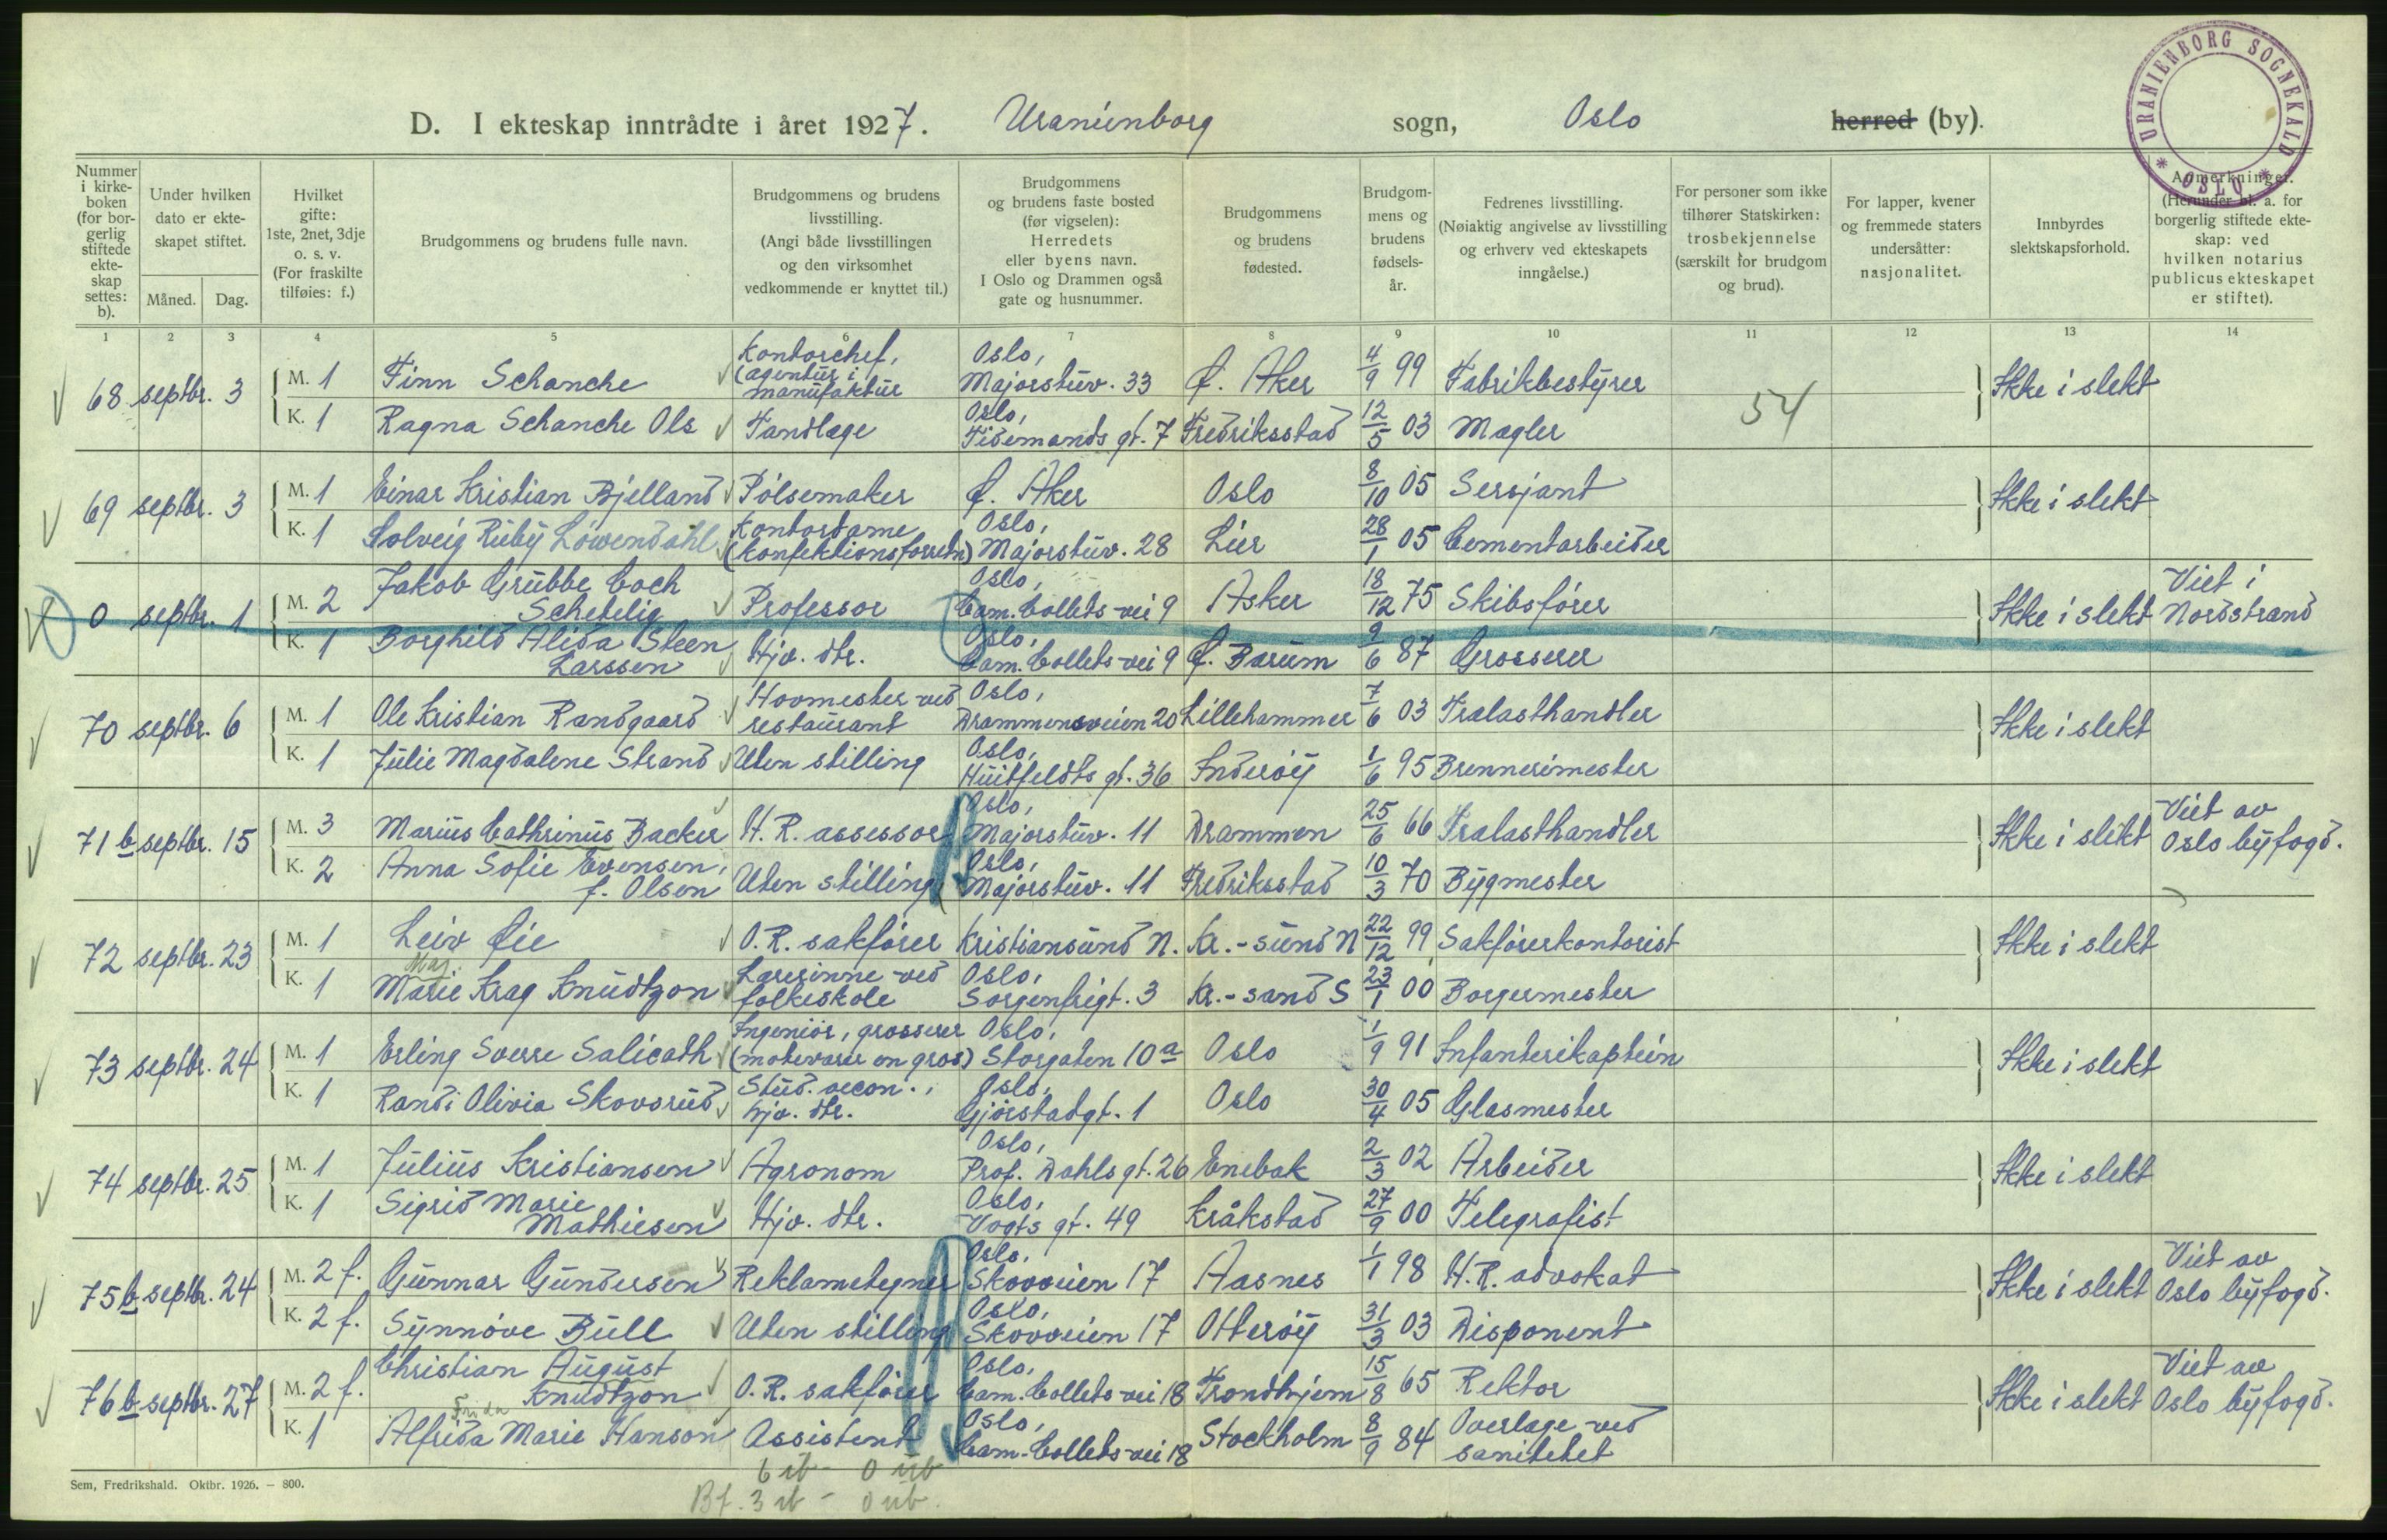 URANIENBORG SOGNEKALD
* OSLO *
D. I ekteskap inntrådte i året 1927. Uranienborg sogn, Oslo herred (by).
Nummer i kirke-boken (for bor-gerlig stiftede ekte-skap settes: b).
Under hvilken dato er ekte-skapet stiftet.
Måned. Dag.
Hvilket gifte: 1ste, 2net, 3dje o. s. v. (For fraskilte tilføies: f.)
Brudgommens og brudens fulle navn.
Brudgommens og brudens livsstilling. (Angi både livsstillingen og den virksomhet vedkommende er knyttet til.)
Brudgommens og brudens faste bosted (før vigselen): Herredets eller byens navn. I Oslo og Drammen også gate og husnummer.
Brudgommens og brudens fødested.
Brudgom-mens og brudens fødsels-år.
Fedrenes livsstilling. (Nøiaktig angivelse av livsstilling og erhverv ved ekteskapets inngåelse.)
For personer som ikke tilhører Statskirken: trosbekjennelse (særskilt for brudgom og brud).
For lapper, kvener og fremmede staters undersåtter: nasjonalitet.
Innbyrdes slektskapsforhold.
Anmerkninger. (Herunder bl. a. for borgerlig stiftede ekte-skap: ved hvilken notarius publicus ekteskapet er stiftet).
1 2 3 4 5 6 7 8 9 10 11 12 13 14
68 septbr. 3 M. 1 Finn Schanche Kontorchef, (agentur i manufaktur Oslo, Majorstuv. 33 Ø. Aker 4/9 99 Fabrikbestyrer Ikke i slekt
K. 1 Ragna Schanche Ols Tandlæge Oslo, Tidemands gt. 7 Fredriksstad 12/5 03 Mægler 54
69 septbr. 3 M. 1 Einar Kristian Bjelland Pølsemaker Ø. Aker Oslo 8/10 05 Sersjant Ikke i slekt
K. 1 Solveig Ruby Löwendahl Kontordame (konfektionsforretn) Oslo, Majorstuv. 28 Lier 28/1 05 Cementarbeider
0 septbr. 1 M. 2 Jakob Grubbe Coch Schetelig Professor Oslo, Cam. Collets vei 9 Asker 18/12 75 Skibsfører Ikke i slekt Viet i Nordstrand
K. 1 Borghild Alida Steen Larssen Hjv. dtr. Oslo, Cam. Collets vei 9 Ø. Bærum 9/6 87 Grosserer
70 septbr. 6 M. 1 Ole Kristian Randgaard Hovmester ved restaurant Oslo, Drammensveien 20 Lillehammer 7/6 03 Trælasthandler Ikke i slekt
K. 1 Julie Magdalene Strand Uten stilling Oslo, Huitfeldts gt. 36 Inderøy 1/6 95 Brennerimester
71 b septbr. 15 M. 3 Marius Cathrinus Backer H. R. assessor Oslo, Majorstuv. 11 Drammen 25/6 66 Trælasthandler Ikke i slekt Viet av Oslo byfogd.
K. 2 Anna Sofie Evensen, f. Olsen Uten stilling Oslo, Majorstuv. 11 Fredriksstad 10/3 70 Bygmester
72 septbr. 23 M. 1 Leiv Øie O. R. sakfører Kristiansund N. Kr.-sund N 22/12 99 Sakførerkontorist Ikke i slekt
Maj
K. 1 Marie Krag Knudtzon Lærerinne ved folkeskole Oslo, Sorgenfrigt. 3 Kr.-sand S 23/1 00 Borgermester
73 septbr. 24 M. 1 Erling Sverre Salicath Ingeniør, grosserer (motevarer en gros) Oslo, Storgaten 10a Oslo 1/9 91 Infanterikaptein Ikke i slekt
K. 1 Randi Olivia Skovsrud Stud. oecon., hjv. dtr. Oslo, Gjørstadgt. 1 Oslo 30/4 05 Glasmester
74 septbr. 25 M. 1 Julius Kristiansen Agronom Oslo, Prof. Dahls gt. 26 Enebak 2/3 02 Arbeider Ikke i slekt
K. 1 Sigrid Marie Mathiesen Hjv. dtr. Oslo, Vogts gt. 49 Kråkstad 27/9 00 Telegrafist
75 b septbr. 24 M. 2 f. Gunnar Gundersen Reklametegner Oslo, Skovveien 17 Aasnes 1/1 98 H. R. advokat Ikke i slekt Viet av Oslo byfogd.
K. 2 f. Synnøve Bull Uten stilling Oslo, Skovveien 17 Otterøy 31/3 03 Disponent
76 b septbr. 27 M. 2 f. Christian August Knudtzon O. R. sakfører Oslo, Cam. Collets vei 18 Trondhjem 15/8 65 Rektor Ikke i slekt Viet av Oslo byfogd.
Frida
K. 1 Alfrida Marie Hanson Assistent Oslo, Cam. Collets vei 18 Stockholm 8/9 84 Overlæge ved sanitetet
Sem, Fredrikshald. Oktbr. 1926. — 800.